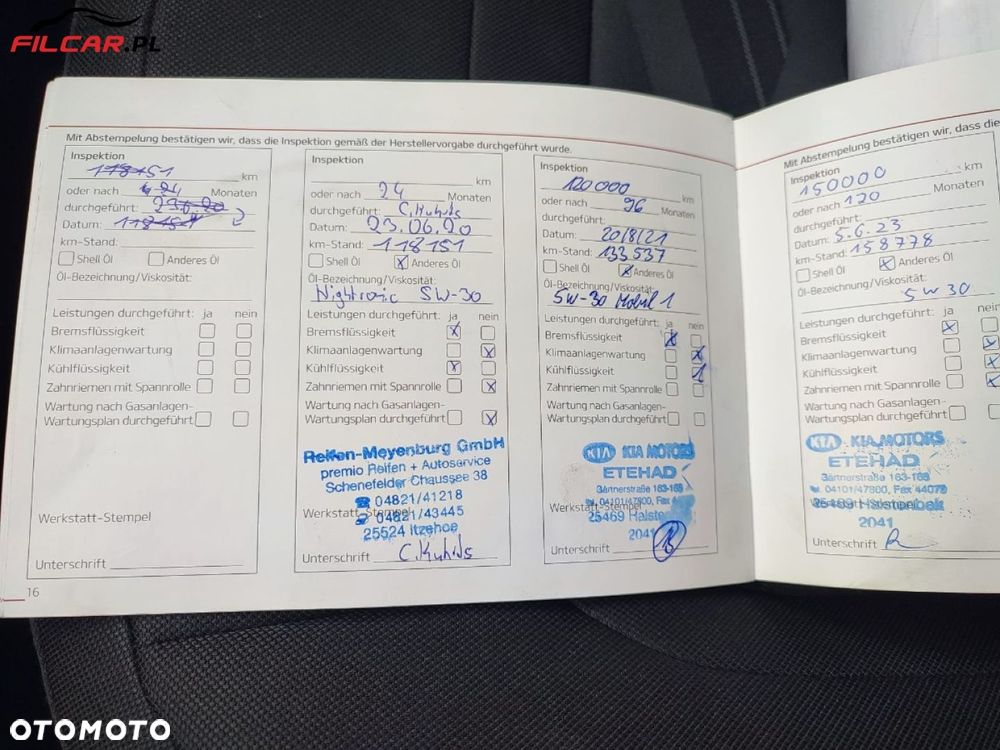 FILCAR.PL
Mit Abstempelung bestätigen wir, dass die Inspektion gemäß der Herstellervorgabe durchgeführt wurde.
Inspektion
118151 km
oder nach 24 Monaten
durchgeführt: 23.6.20
Datum: 118151
km-Stand:
Shell Öl Anderes Öl
Öl-Bezeichnung/Viskosität:
Leistungen durchgeführt: ja nein
Bremsflüssigkeit
Klimaanlagenwartung
Kühlflüssigkeit
Zahnriemen mit Spannrolle
Wartung nach Gasanlagen-
Wartungsplan durchgeführt
Werkstatt-Stempel
Unterschrift
16
Inspektion
km
oder nach 24 Monaten
durchgeführt: C.Kuhids
Datum: 23.06.20
km-Stand: 118151
Shell Öl X Anderes Öl
Öl-Bezeichnung/Viskosität:
5W-30
Leistungen durchgeführt: ja nein
Bremsflüssigkeit X
Klimaanlagenwartung X
Kühlflüssigkeit X
Zahnriemen mit Spannrolle X
Wartung nach Gasanlagen-
Wartungsplan durchgeführt X
Reifen-Meyenburg GmbH
premio Reifen + Autoservice
Schenefelder Chaussee 38
04821/41218
Werkstatt-Stempel
04821/43445
25524 Itzehoe
Unterschrift C.Kuhids
Inspektion
120000 km
oder nach 96 Monaten
durchgeführt:
Datum: 20/8/21
km-Stand: 133537
Shell Öl X Anderes Öl
Öl-Bezeichnung/Viskosität:
5W-30 Mobil 1
Leistungen durchgeführt: ja nein
Bremsflüssigkeit X
Klimaanlagenwartung X
Kühlflüssigkeit
Zahnriemen mit Spannrolle
Wartung nach Gasanlagen-
Wartungsplan durchgeführt
KIA KIA MOTORS
ETEHAD
Gärtnerstraße 163-165
04101/47800, Fax
Werkstatt-Stempel
25469 Halste
2041
Unterschrift
Mit Abstempelung bestätigen wir, dass die
Inspektion
150000 km
oder nach 120 Monaten
durchgeführt:
Datum: 5.6.23
km-Stand: 158778
Shell Öl X Anderes Öl
Öl-Bezeichnung/Viskosität:
5W30
Leistungen durchgeführt: ja nein
Bremsflüssigkeit X
Klimaanlagenwartung X
Kühlflüssigkeit X
Zahnriemen mit Spannrolle X
Wartung nach Gasanlagen-
Wartungsplan durchgeführt
KIA KIA MOTORS
ETEHAD
Gärtnerstraße 163-165
04101/47800, Fax 44079
Werkstatt-Stempel
2041
Unterschrift
OTOMOTO